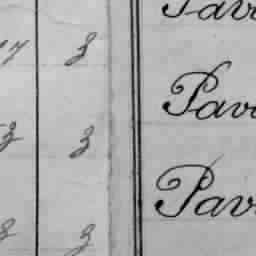 Pav
17 3 Pav
3 3 Pav
3 3